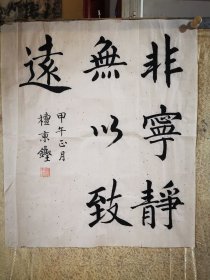 非寧靜
無以致
遠
甲午正月
檀東鏗